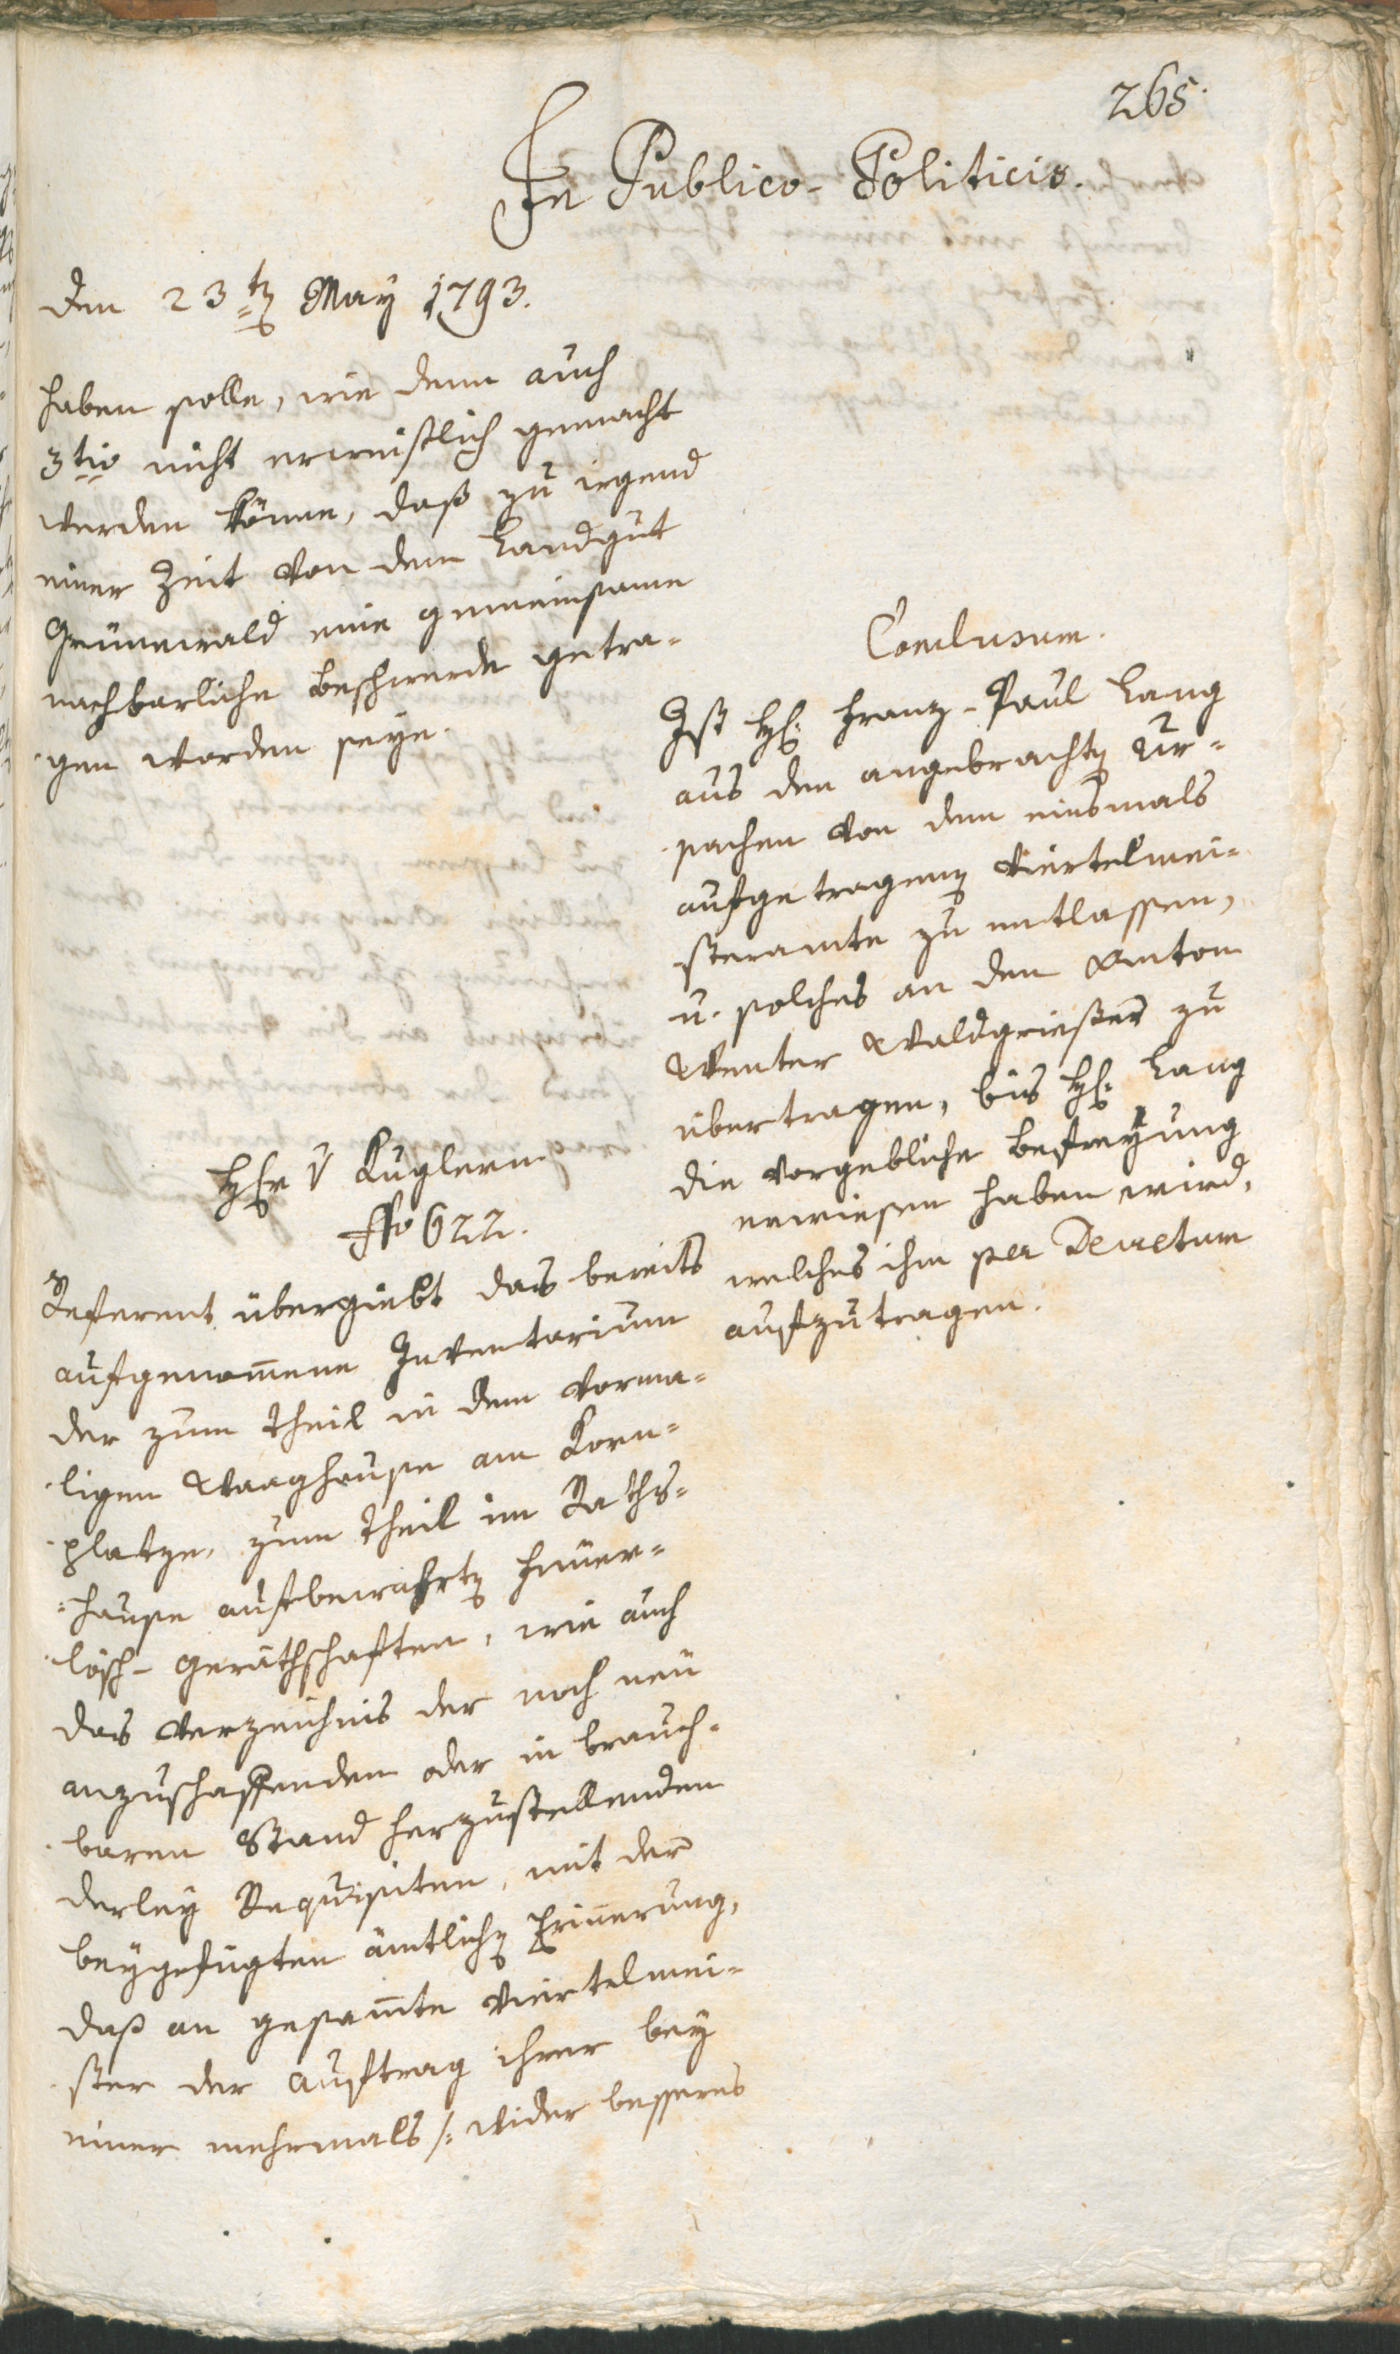 265.
In Publico-Politicis.
den 23ten May 1793.
haben solle, wie denn auch
3tio nicht erweislich gemacht
werden könne, daß zu irgend
einer Zeit von dem Landgut
Grünewald eine gemeinsame
nachbarliche Beschwerde getra-
gen worden seye.
Conclusum.
Ist H: Franz-Paul Lang
aus den angebrachten Ur-
sachen von dem eins mals
aufgetragenen Viertelmei-
steramte zu entlassen,
u. solches an den Anton
Wenter Waldgrießer zu
übertragen, bis H: Lang
die vorgebliche Befreyung
erwiesen haben wird,
welches ihm per Decretum
aufzutragen.
H v Kuglern
No 622.
Referent übergiebt das bereits
aufgenom̄ene Inventarium
der zum theil in dem vorma-
ligen Waaghause am Korn-
platze, zum theil im Raths-
=hause aufbewahrten Feuer-
lösch-geräthschaften, wie auch
das Verzeichnis der noch neu
anzuschaffenden oder in brauch-
baren Stand herzustellenden
derley Requisiten, mit der
beygefügten ämtlichen Erin̄erung,
daß an gesam̄te Viertelmei-
ster der Auftrag ihrer bey
einer mehrmals /: wider besseres